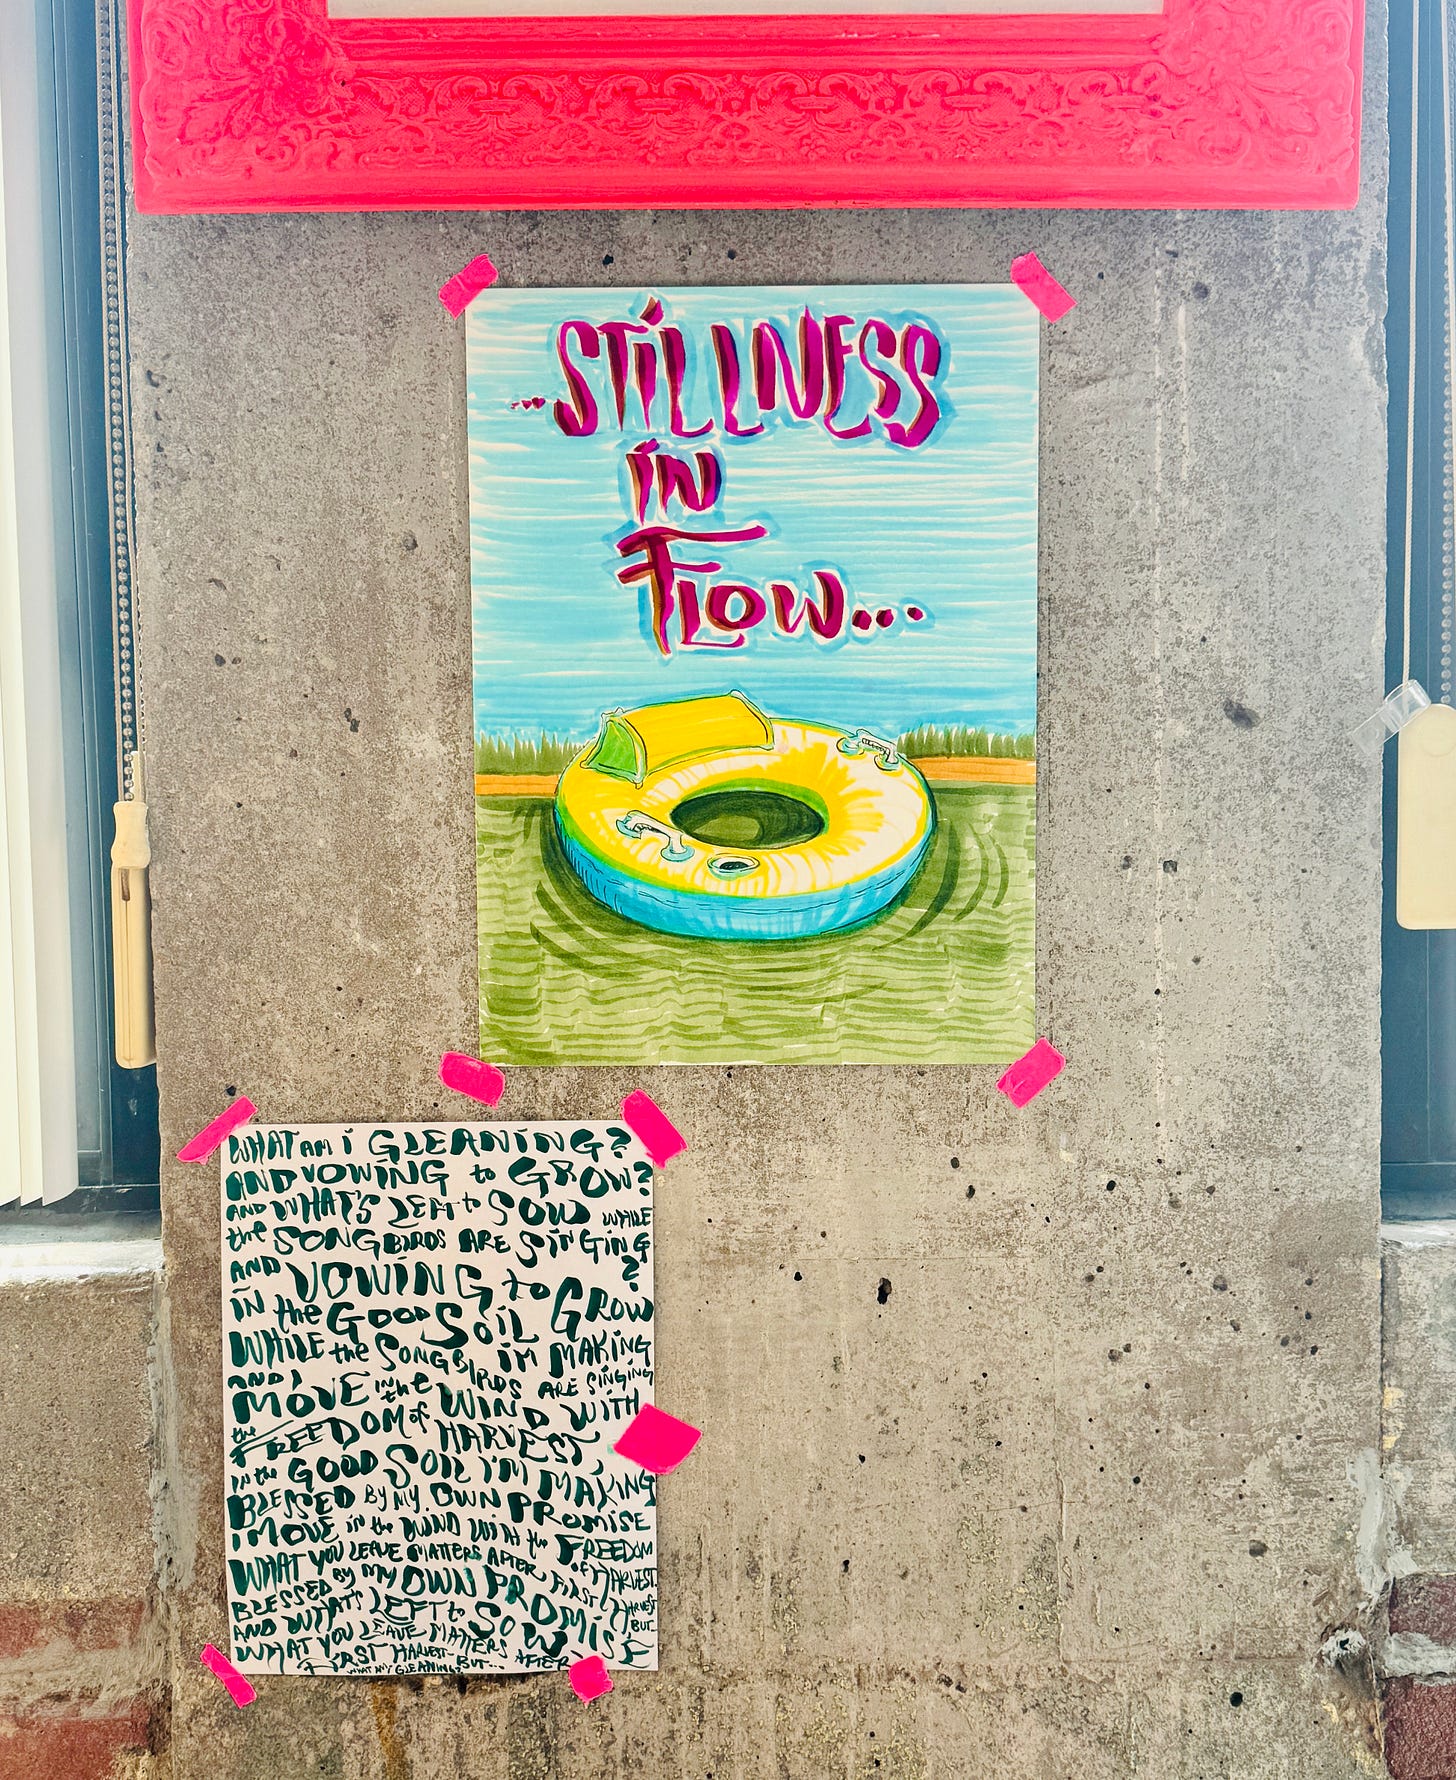 ...STiLLNESS
iN
FLOW...
WHAT AM i GLEANiNG?
AND VOWiNG to GROW?
AND WHAT'S LEFT to SOW WHiLE
the SONGBiRDS ARE SiNGiNG
?
AND VOWiNG to GROW
iN the GOOD SOiL
WHiLE the SONGBiRDS ARE SiNGiNG
i'M MAKiNG
AND i
MOVE in the WiND WiTH
the FREEDOM of HARVEST,
iN the GOOD SOiL i'M MAKiNG
BLESSED BY MY OWN PROMiSE
i MOVE in the WiND WiTH the FREEDOM
of HARVEST.
WHAT YOU LEAVE MATTERS AFTER FiRST HARVEST BUT...
BLESSED BY MY OWN PROMiSE
AND WHAT'S LEFT to SOW-
WHAT YOU LEAVE MATTERS AFTER-
FiRST HARVEST- BUT...
WHAT AM i GLEANiNG?